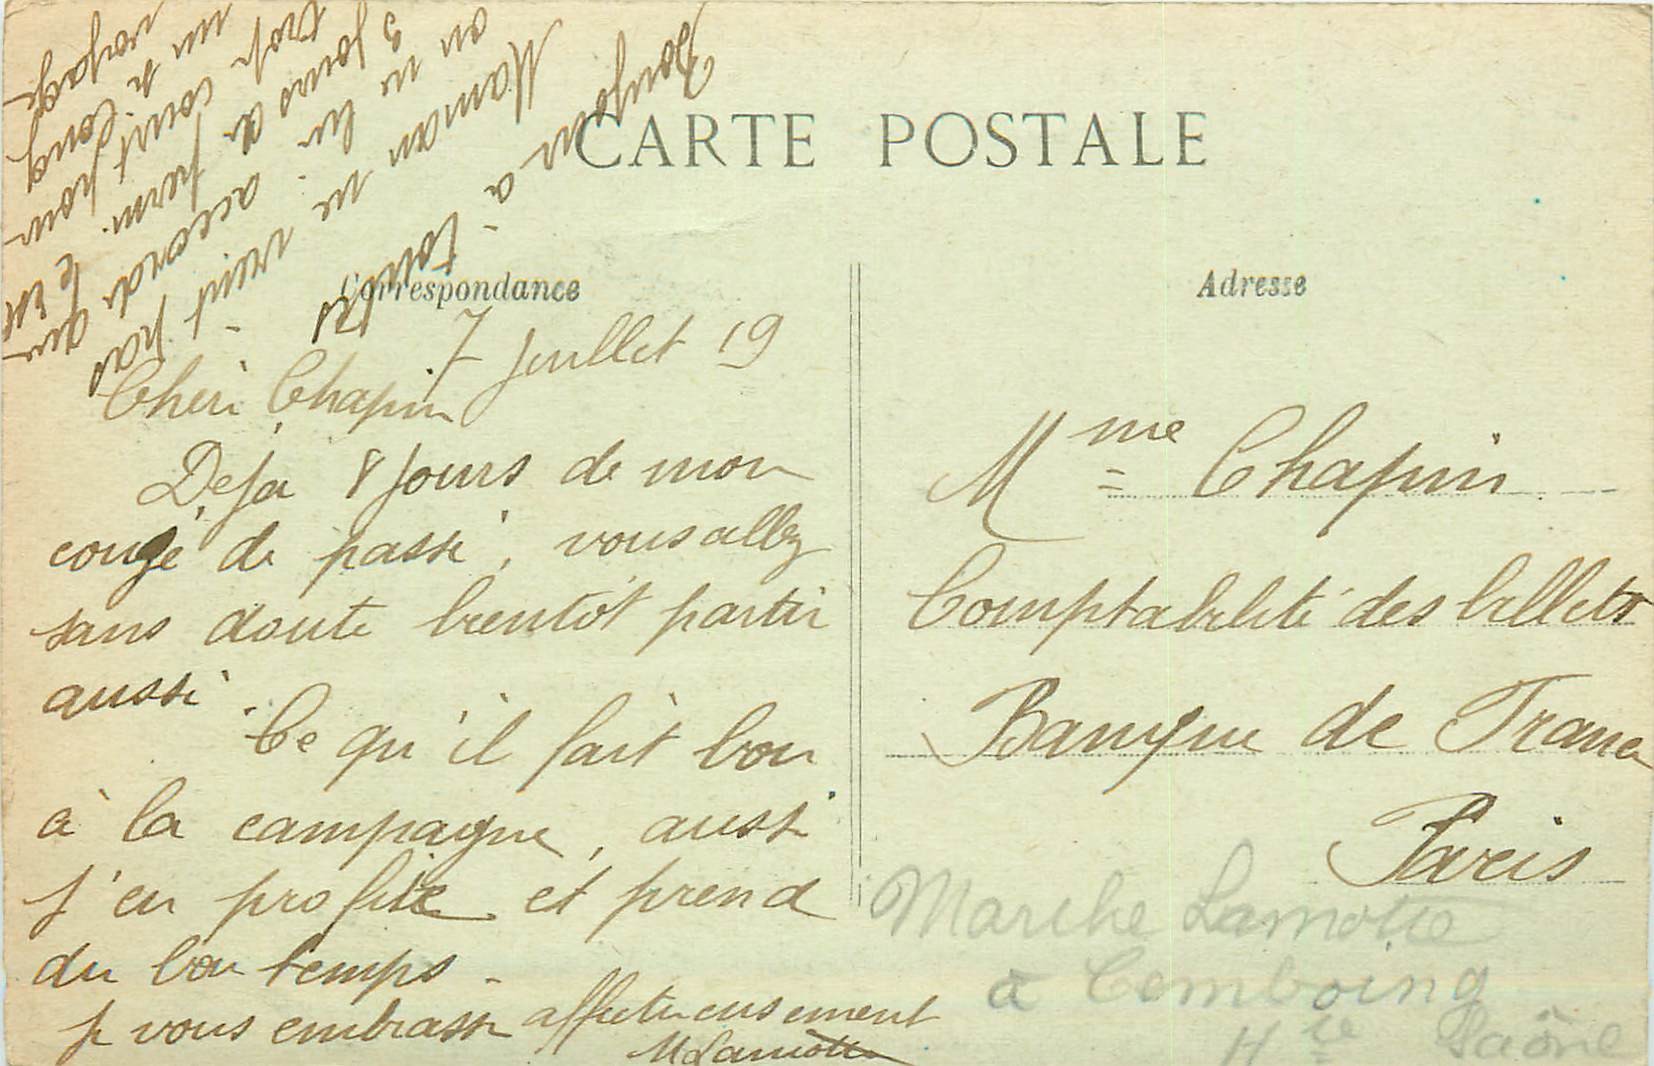 CARTE POSTALE
Correspondance
Adresse
7 Juillet 19
Chèri Chapin
Deja 8 jours de mon
congé de passé, vous allez
sans doute bientôt partir
aussi.
Ce qu'il fait bon
à la campagne, aussi
j'en profite et prend
du bon temps -
je vous embrasse affectueusement
MLamotte
Bonjour à toutes
Maman ne veut pas
on ne lui accorde que
3 jours de perm. 
trop court pour
un si long
voyage
Mme Chapin
Comptabilité des billets
Banque de France
Paris
Marthe Lamotte
à Cemboing
Hte Saône